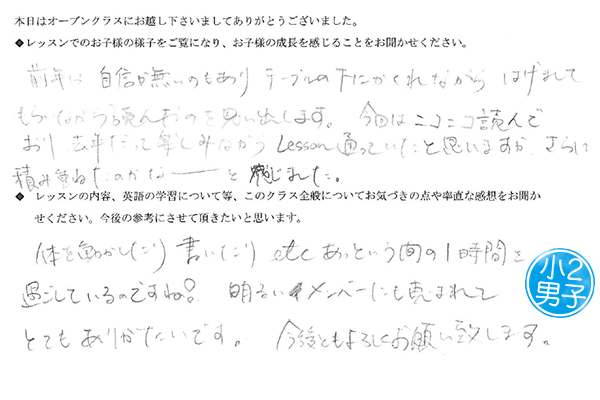 本日はオープンクラスにお越し下さいましてありがとうございました。
◆レッスンでのお子様の様子をご覧になり、お子様の成長を感じることをお聞かせください。
前年は 自信が無いのもあり テーブルの下にかくれながら はげまして
もらいながら読んだのを思い出します。 今回はニコニコ読んで
おり 去年だって楽しみながら Lesson 通っていたと思いますが、さらに
積み重ねたのかな――と 感じました。
◆ レッスンの内容、英語の学習について等、このクラス全般についてお気づきの点や率直な感想をお聞か
せください。今後の参考にさせて頂きたいと思います。
体を動かしたり 書いたり etc あっという間の1時間を
過ごしているのですね! 明るいメンバーにも恵まれて
とてもありがたいです。 今後ともよろしくお願い致します。
小2
男子